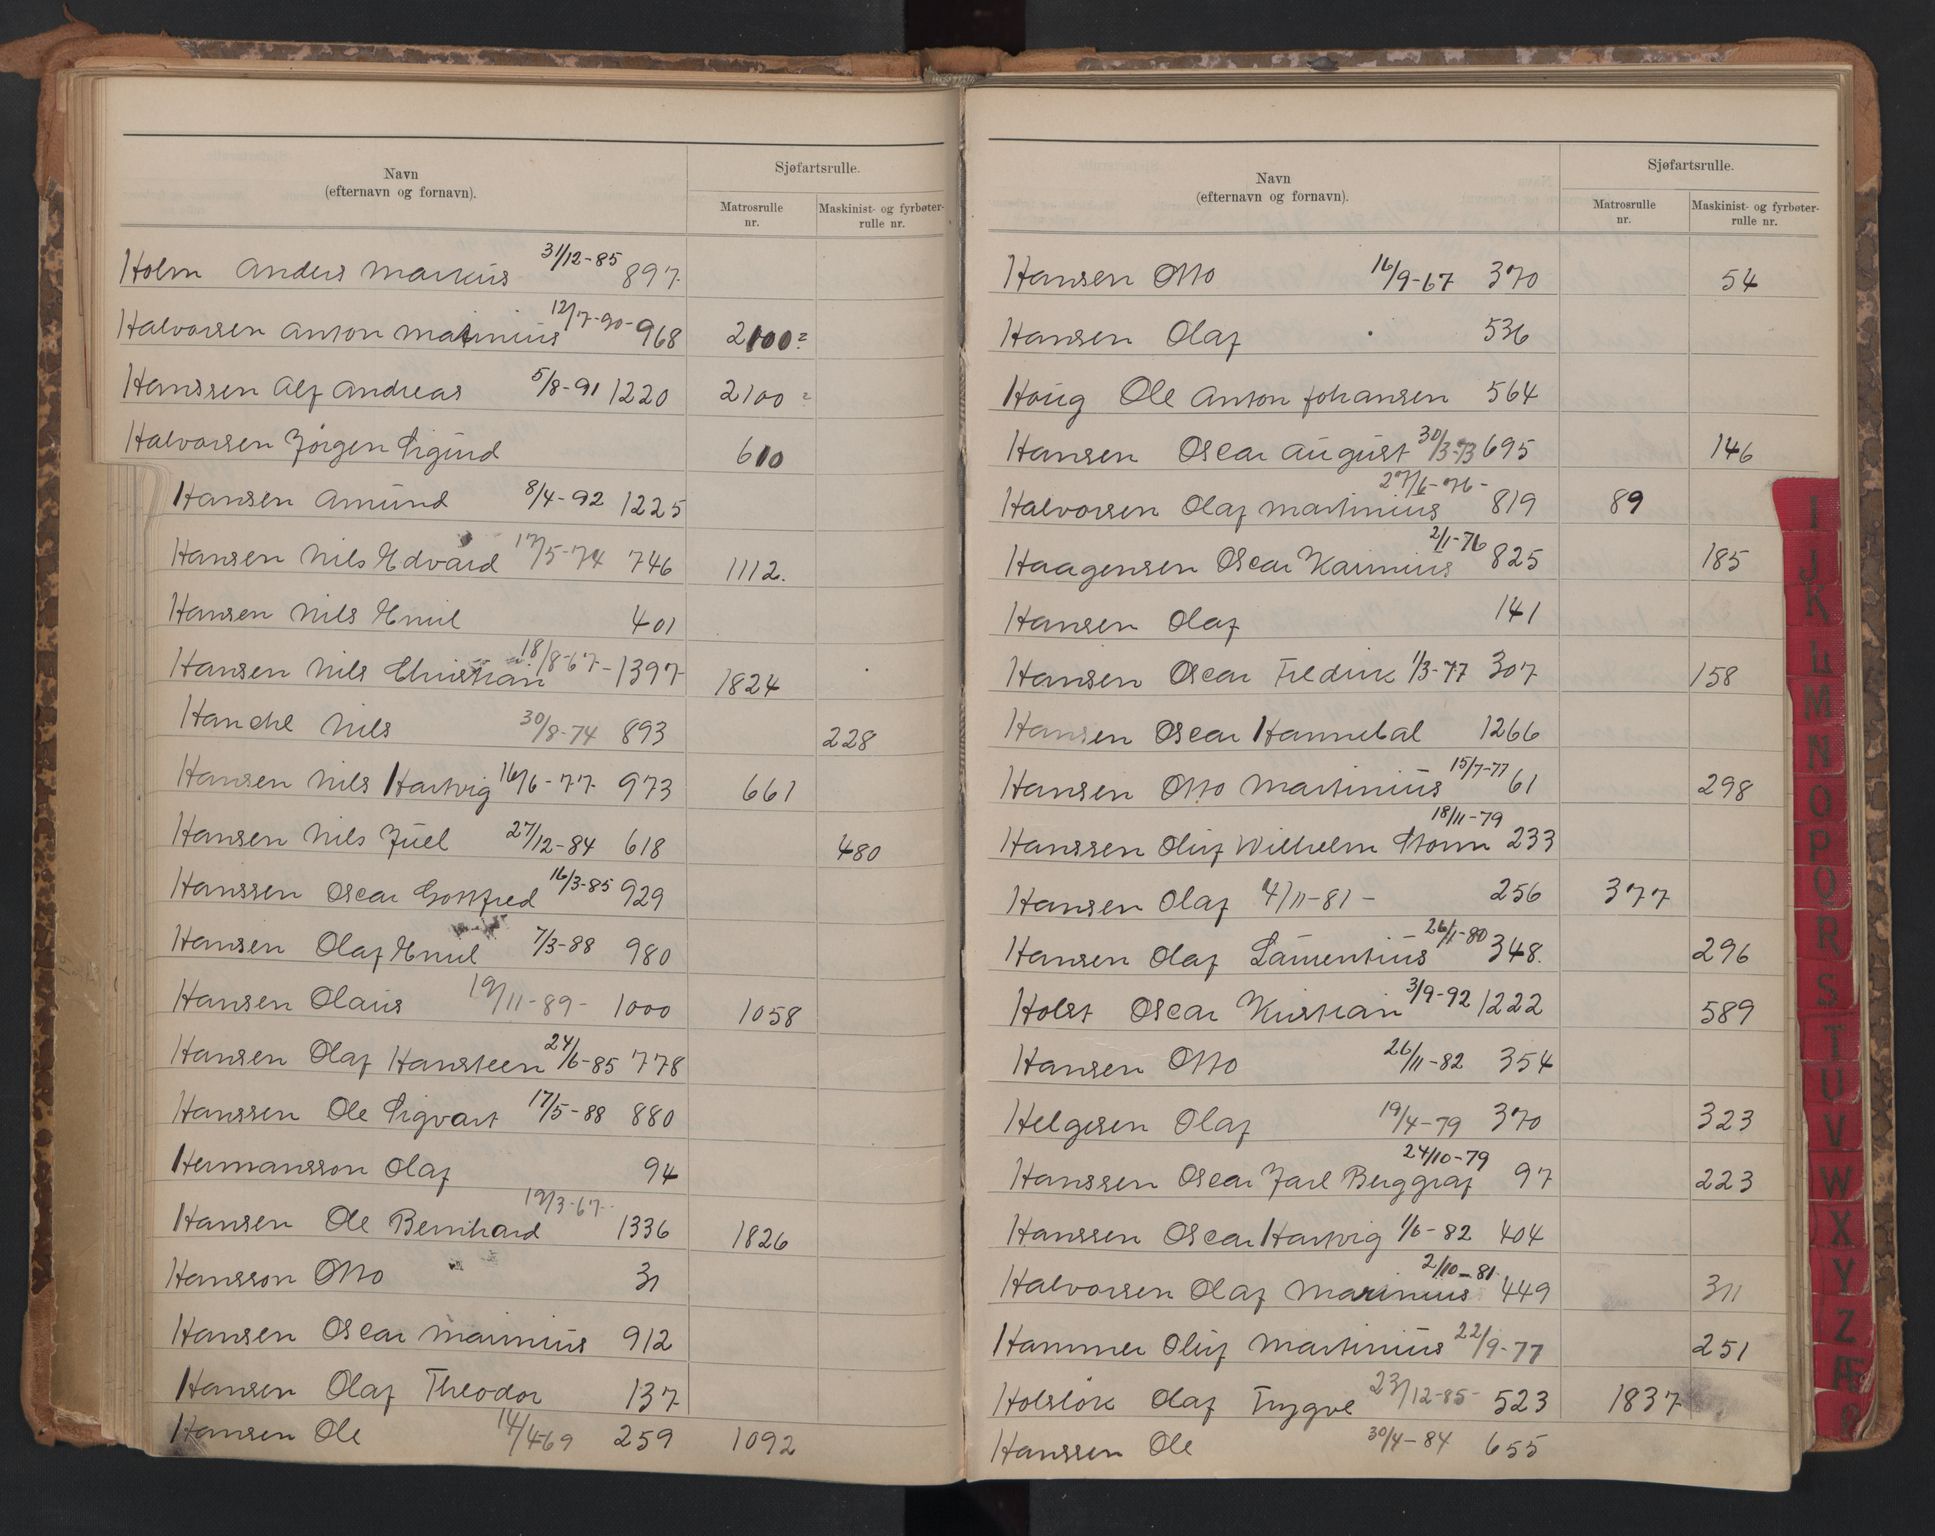 Navn
(efternavn og fornavn).
Sjøfartsrulle.
Matrosrulle nr.
Maskinist- og fyrbøter-rulle nr.
Holm Anders Markus 31/12-85 897
Halvorsen Anton Matinius 12/7-90- 968 2100?
Hanssen Alf Andreas 5/8-91 1220 2100?
Halvorsen Jørgen Sigurd 610
Hansen Amund 8/4-92 1225
Hansen Nils Edvard 17/5-74 746 1112.
Hansen Nils Emil 401
Hansen Nils Christian 18/8-67- 1397 1824
Nils 30/8-74 893 228
Hansen Nils Hartvig 16/6-77 973 661
Hansen Nils Juel 27/12-84 618 480
Hanssen Oscar Gottfred 16/3-85 929
Hansen Olaf Emil 7/3-88 980
Hansen Olaus 19/11-89- 1000 1058
Hansen Olaf Hansteen 24/6-85 778
Hanssen Ole Sigvart 17/5-88 880
Hermansson Olaf 94
Hansen Ole Bernhard 19/3-67- 1336 1826
Hansson Otto 31
Hansen Oscar Marinius 912
Hansen Olaf Theodor 137
Hansen Ole 14/4 69 259 1092
Navn
(efternavn og fornavn).
Sjøfartsrulle.
Matrosrulle nr.
Maskinist- og fyrbøter-rulle nr.
Hansen Otto 16/9-67 370 54
Hansen Olaf 536
Houg Ole Anton Johansen 564
Hansen Oscar August 30/3-73 695 146
Halvorsen Olaf Martinius 27/6-76- 819 89
Haagensen Oscar Karinius 2/1-76 825 185
Hansen Olaf 141
Hansen Oscar Fredrik 1/3-77 307 158
Hansen Oscar Hannebal 1266
Hansen Otto Martinius 15/7-77 61 298
Hanssen Oluf Wilhelm Storm 18/11-79 233
Hansen Olaf 4/11-81- 256 377
Hansen Olaf Laurentius 26/1-80 348. 296
Holst Oscar Kristian 3/9-92 1222 589
Hansen Otto 26/11-82 354
Helgesen Olaf 19/4-79 370 323
Hanssen Oscar Jarl Berggraf 24/10-79 97 223
Hanssen Oscar Hartvig 1/6-82 404
Halvorsen Olaf Marinius 2/10-81 449 311
Hammer Oluf Martinius 22/9-77 251
Olaf Trygve 23/12-85- 523 1837
Hanssen Ole 30/4-84 655
I
J
K
L
M
N
O
P
Q
R
S
T
U
V
W
X
Y
Z
Æ
Ø